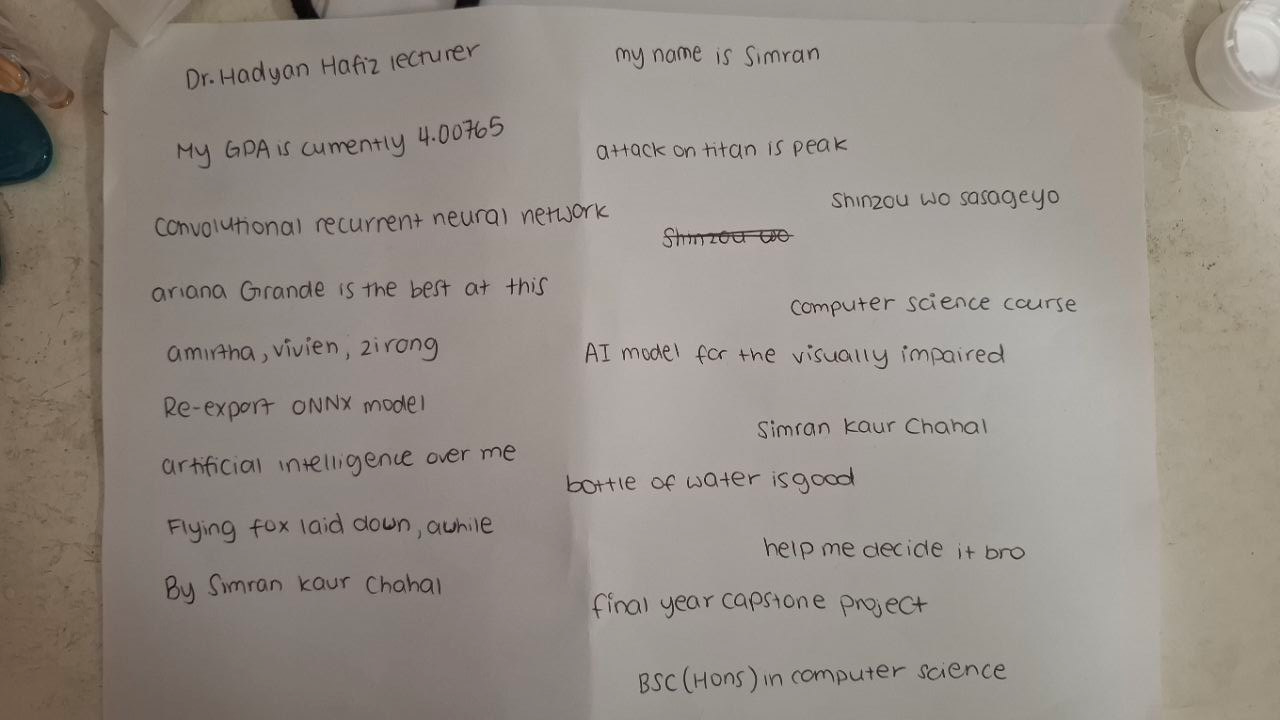 Dr. Hadyan Hafiz lecturer
My GPA is currently 4.00765
convolutional recurrent neural network
ariana Grande is the best at this
amirtha, vivien, zirong
Re-export ONNX model
artificial intelligence over me
Flying fox laid down, awhile
By Simran kaur Chahal
my name is Simran
attack on titan is peak
Shinzou wo sasageyo
Shinzou wo
computer science course
AI model for the visually impaired
Simran kaur Chahal
bottle of water is good
help me decide it bro
final year capstone project
BSC (Hons) in computer science